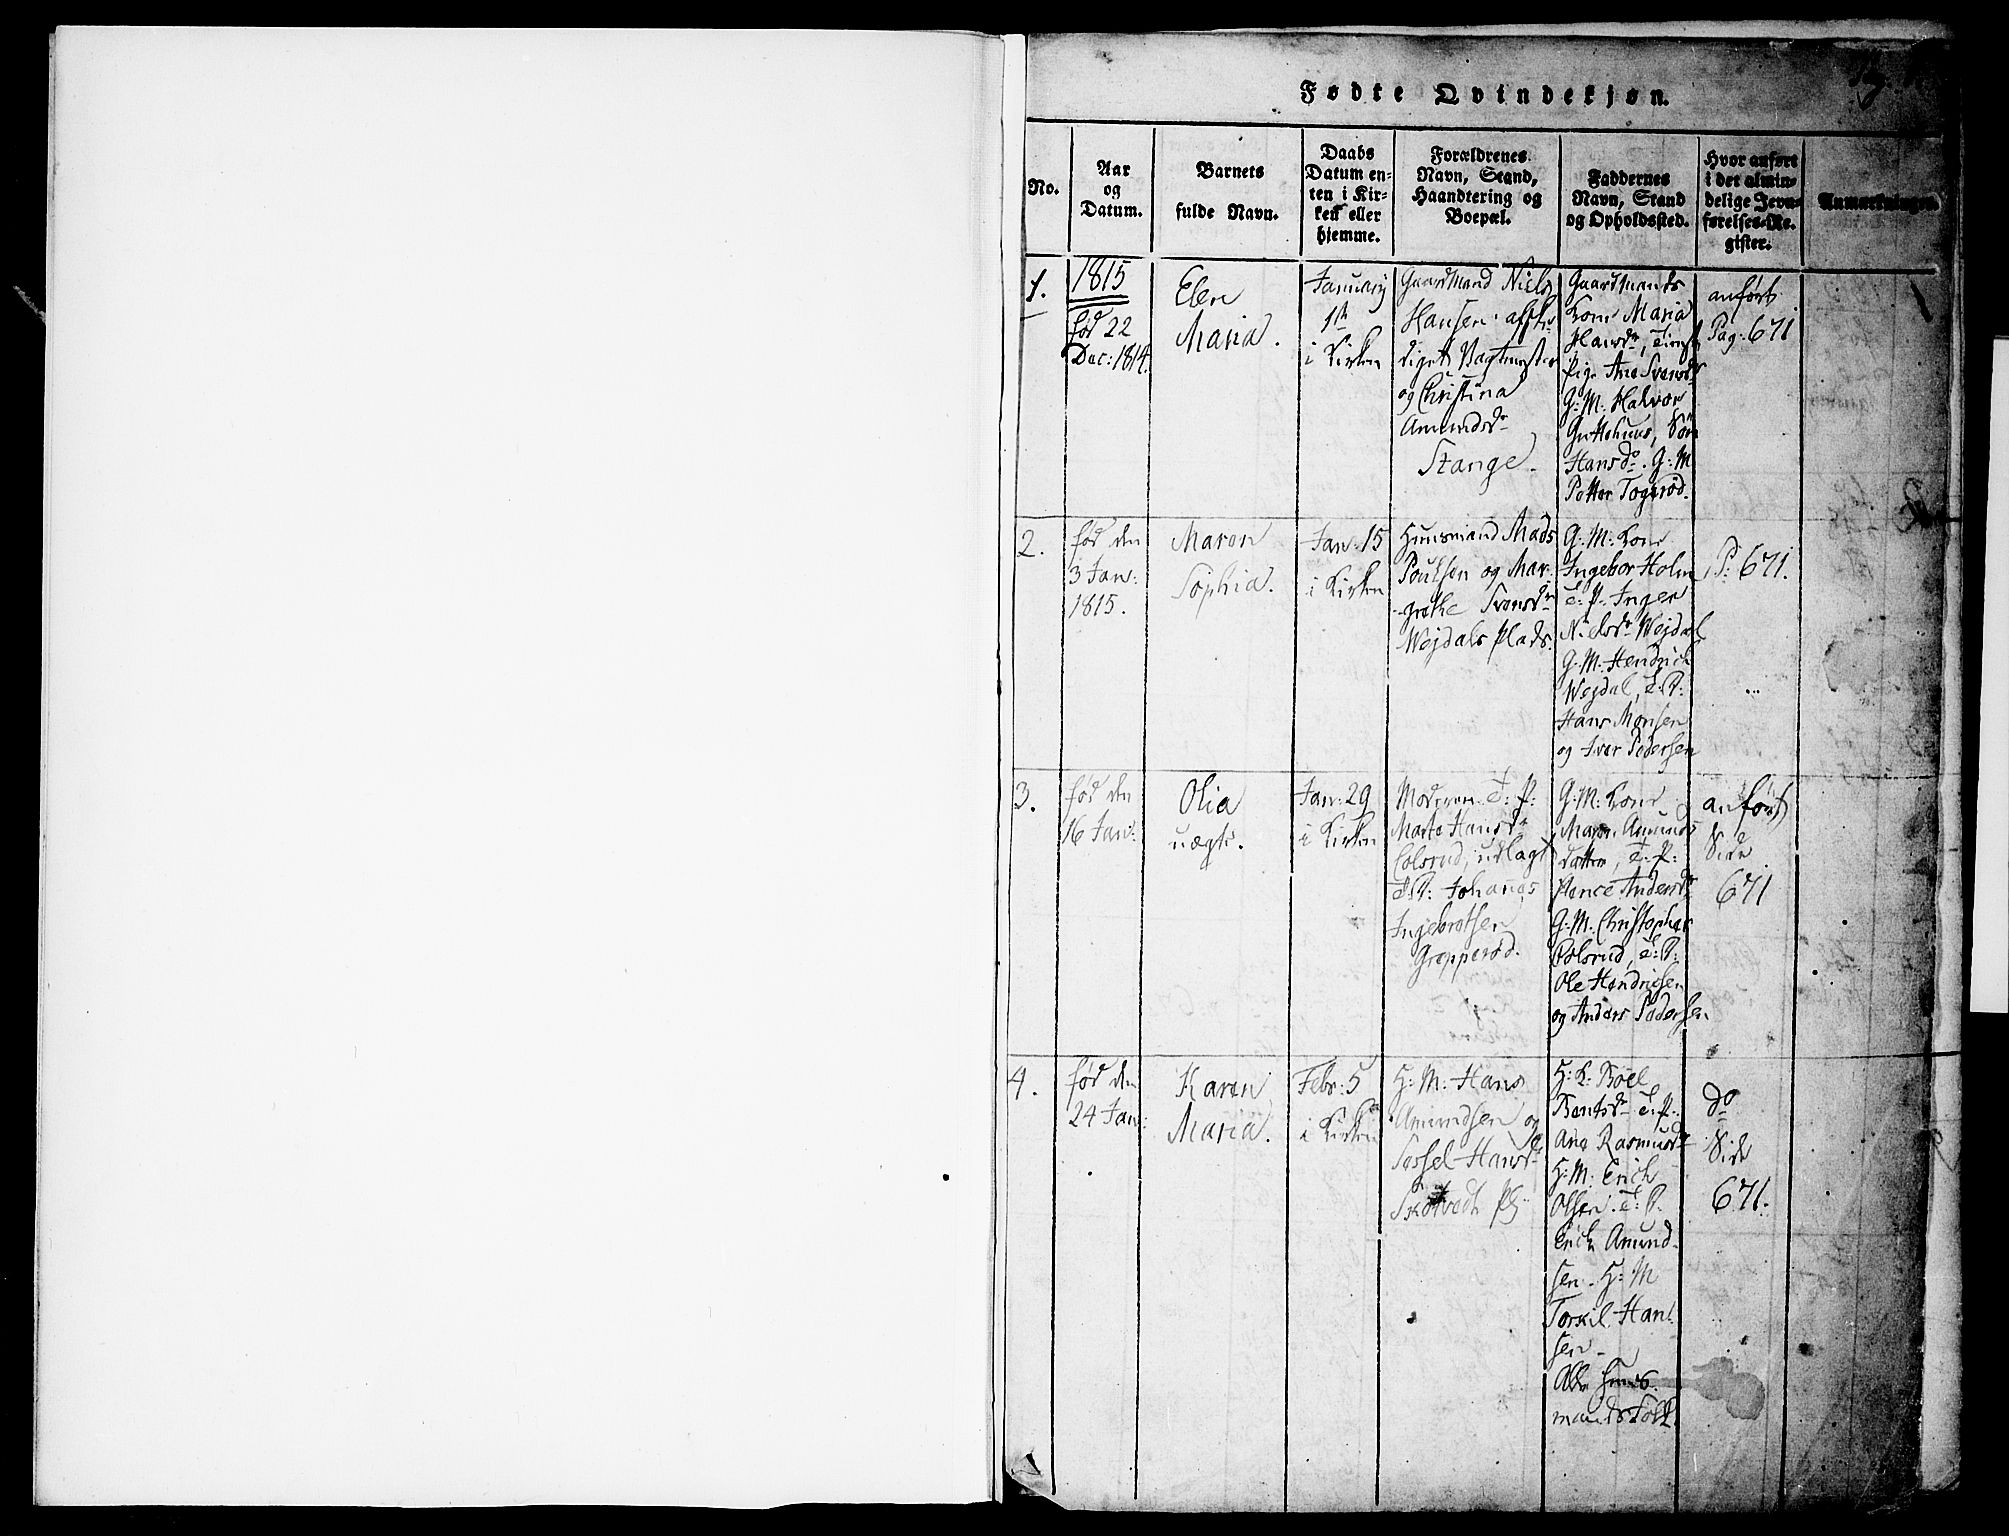 Fødte Qvindekjøn.
No.
Aar
og
Datum.
Barnets
fulde Navn.
Daabs
Datum en-
ten i Kir-
ken eller
hjemme.
Forældrenes
Navn, Stand,
Haandtering og
Boepæl.
Faddernes
Navn, Stand
og Opholdssted.
Hvor anført
i det almin-
delige Jevn-
førelses-Re-
gister.
Anmærkninger.
1.
1815
fød 22
Dec: 1814.
Elen
Maria.
January
1st
i Kirken
Gaardmand Niels
Hansen
og Christina
Amundsdr
Stange.
Gaardmands
Kone Maria
Hansdr,
Pige Ane Svensdr
G: M: Halvor
Hansdr. G: M
Petter Togerød.
anført
Pag: 671
2.
fød den
3 Jan:
1815.
Maren
Sophia.
Jan: 15
i Kirken
Huusmand Mads
Poulsen og Mar-
grethe Svensdr
Wejdals Plads.
G. M: Kone
Ingebor Holm
T: P. Inger
Nielsdr Wejdal
G. M: Hendrich
Wejdal, T: P:
Hans Monsen
og Iver Pedersen
P: 671.
3.
fød den
16 Jan:
Olia
uægte.
Jan: 29
i Kirken
Moderen T: P:
Marte Hansdr
Colsrud, udlagt
Johannes
Ingebretsen
Grepperød.
G: M: Kone
Maren Amunds
datter, T: P:
Andersdr
G: M. Christopher
Colsrud, T: P:
Ole Hendrichsen
og Anders Pedersen
anført
Side
671
4.
fød den
24 Jan:
Karen
Maria.
Febr: 5
i Kirken
H: M: Hans
Amundsen og
Hansdr
Skotvedt Pl:
H: K: Boel
Bentsdr T. P.
Ane Rasmusdr
H: M: Erich
Olsen. T: P.
Erich Amund-
sen. H: M
Torkil Han-
sen.
Alle Huus-
mands Folk.
do
Side
671.